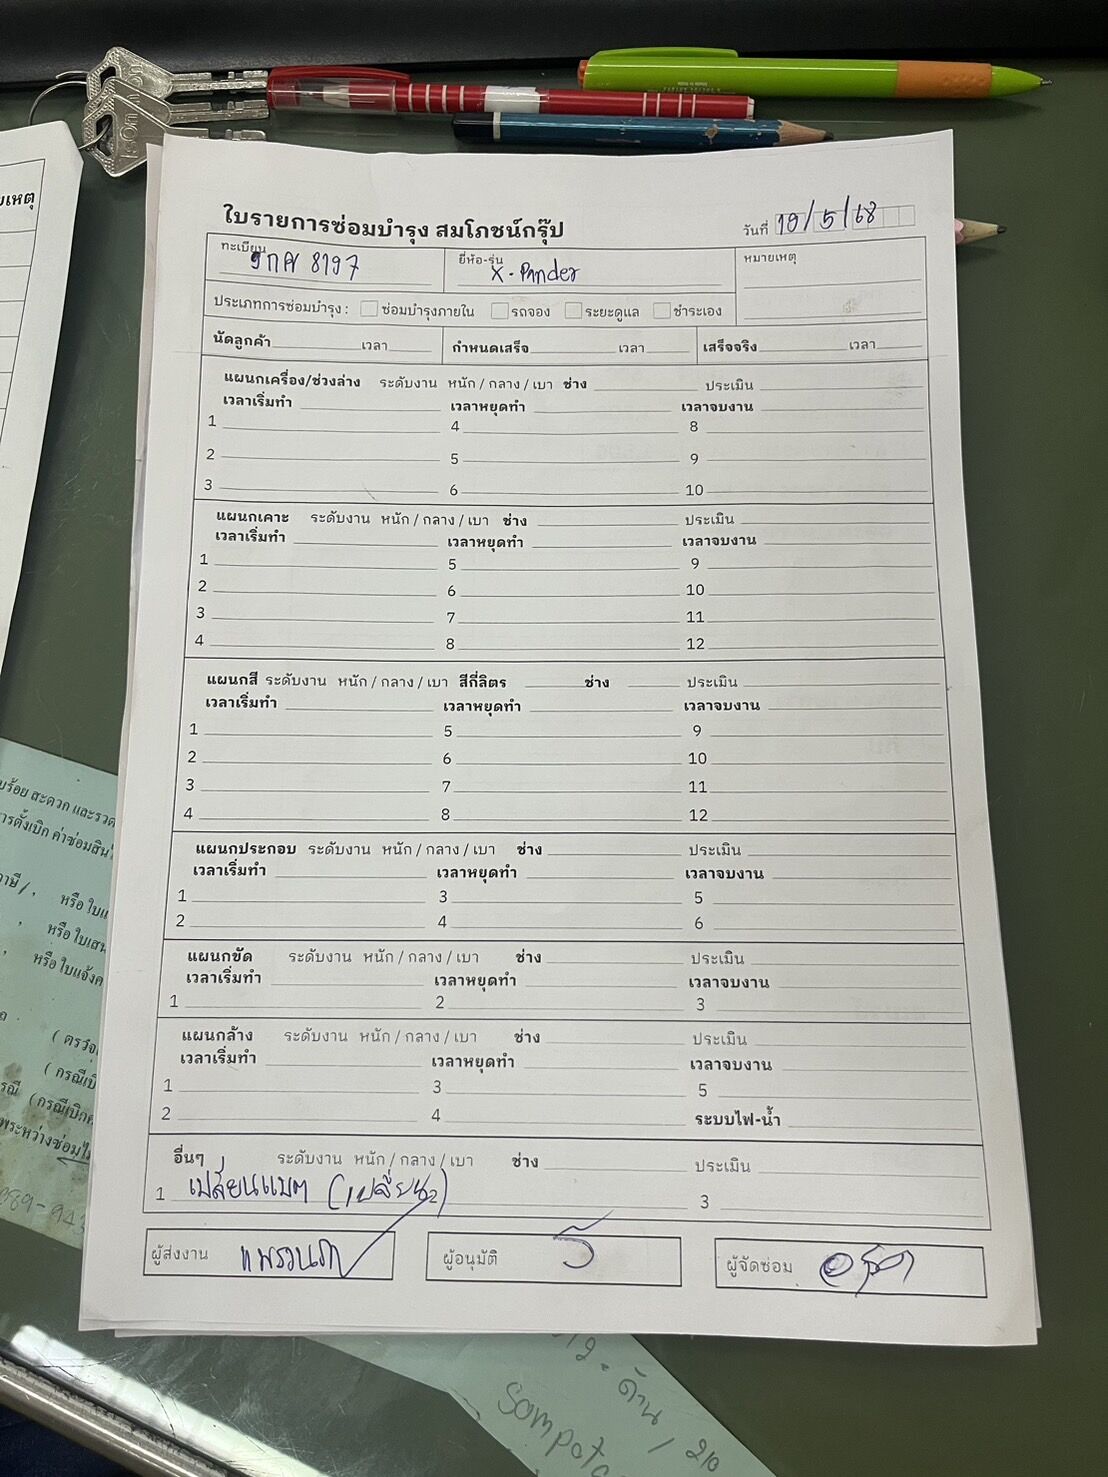 ยเหตุ
ใบรายการซ่อมบำรุง สมโภชน์กรุ๊ป
วันที่ 10/5/68
ทะเบียน 8197
ยี่ห้อ-รุ่น X-Pander
หมายเหตุ
ประเภทการซ่อมบำรุง : ซ่อมบำรุงภายใน รถจอง ระยะดูแล ชำระเอง
นัดลูกค้า เวลา กำหนดเสร็จ เวลา เสร็จจริง เวลา
แผนกเครื่อง/ช่วงล่าง ระดับงาน หนัก / กลาง / เบา ช่าง ประเมิน
เวลาเริ่มทำ เวลาหยุดทำ เวลาจบงาน
1 4 8
2 5 9
3 6 10
แผนกเคาะ ระดับงาน หนัก / กลาง / เบา ช่าง ประเมิน
เวลาเริ่มทำ เวลาหยุดทำ เวลาจบงาน
1 5 9
2 6 10
3 7 11
4 8 12
แผนกสี ระดับงาน หนัก / กลาง / เบา สีกี่ลิตร ช่าง ประเมิน
เวลาเริ่มทำ เวลาหยุดทำ เวลาจบงาน
1 5 9
2 6 10
3 7 11
4 8 12
แผนกประกอบ ระดับงาน หนัก / กลาง / เบา ช่าง ประเมิน
เวลาเริ่มทำ เวลาหยุดทำ เวลาจบงาน
1 3 5
2 4 6
แผนกขัด ระดับงาน หนัก / กลาง / เบา ช่าง ประเมิน
เวลาเริ่มทำ เวลาหยุดทำ เวลาจบงาน
1 2 3
แผนกล้าง ระดับงาน หนัก / กลาง / เบา ช่าง ประเมิน
เวลาเริ่มทำ เวลาหยุดทำ เวลาจบงาน
1 3 5
2 4 ระบบไฟ-น้ำ
อื่นๆ ระดับงาน หนัก / กลาง / เบา ช่าง ประเมิน
1 เปลี่ยนแบต (เปลี่ยน) 2 3
ผู้ส่งงาน
ผู้อนุมัติ
ผู้จัดซ่อม
บร้อย สะดวก และรวด
ารตั้งเบิก ค่าซ่อมสิน
าษี/, หรือ ใบแ
, หรือ ใบเสน
, หรือ ใบแจ้งค
( ตรวจ
( กรณีเบิ
รณี (กรณีเบิก
พระหว่างซ่อมไม
089-943
12. ด้าน / 210